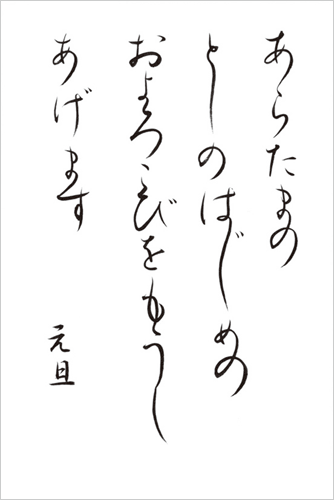 あらたまの
としのはじめの
およろこびをもうし
あげます
元旦